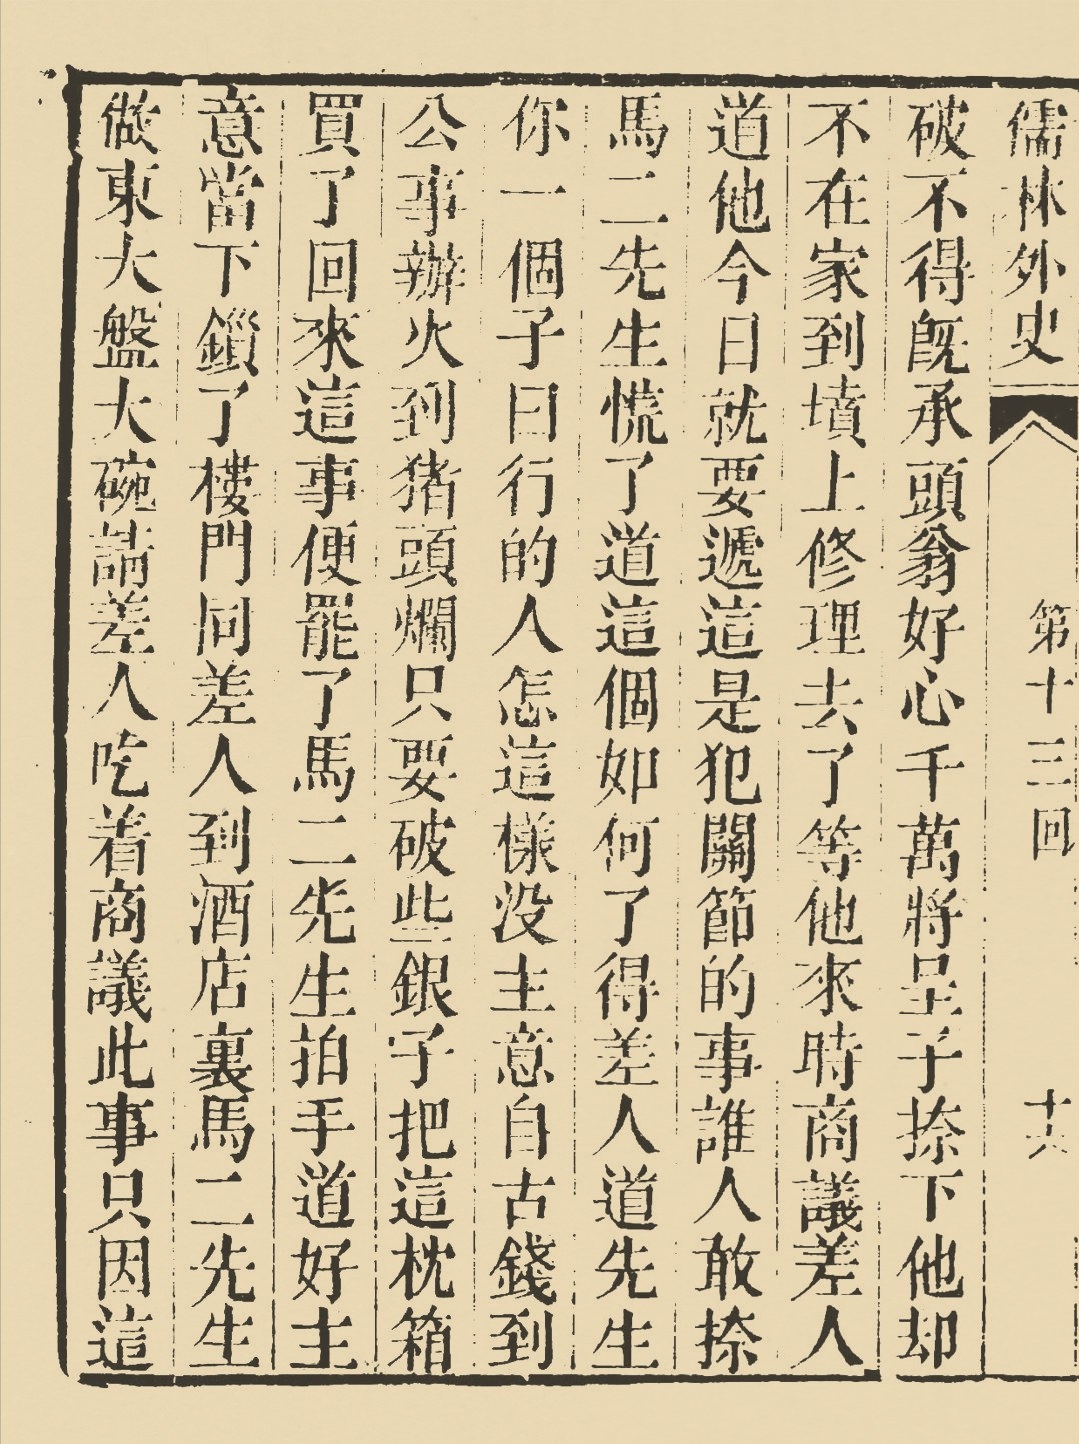 儒林外史 第十三回 十六
破不得旣承頭翁好心千萬將呈子捺下他却
不在家到墳上修理去了等他來時商議差人
道他今日就要遞這是犯關節的事誰人敢捺
馬二先生慌了道這個如何了得差人道先生
你一個子曰行的人怎這樣没主意自古錢到
公事辦火到猪頭爛只要破些銀子把這枕箱
買了回來這事便罷了馬二先生拍手道好主
意當下鎻了樓門同差人到酒店裏馬二先生
做東大盤大碗請差人吃着商議此事只因這